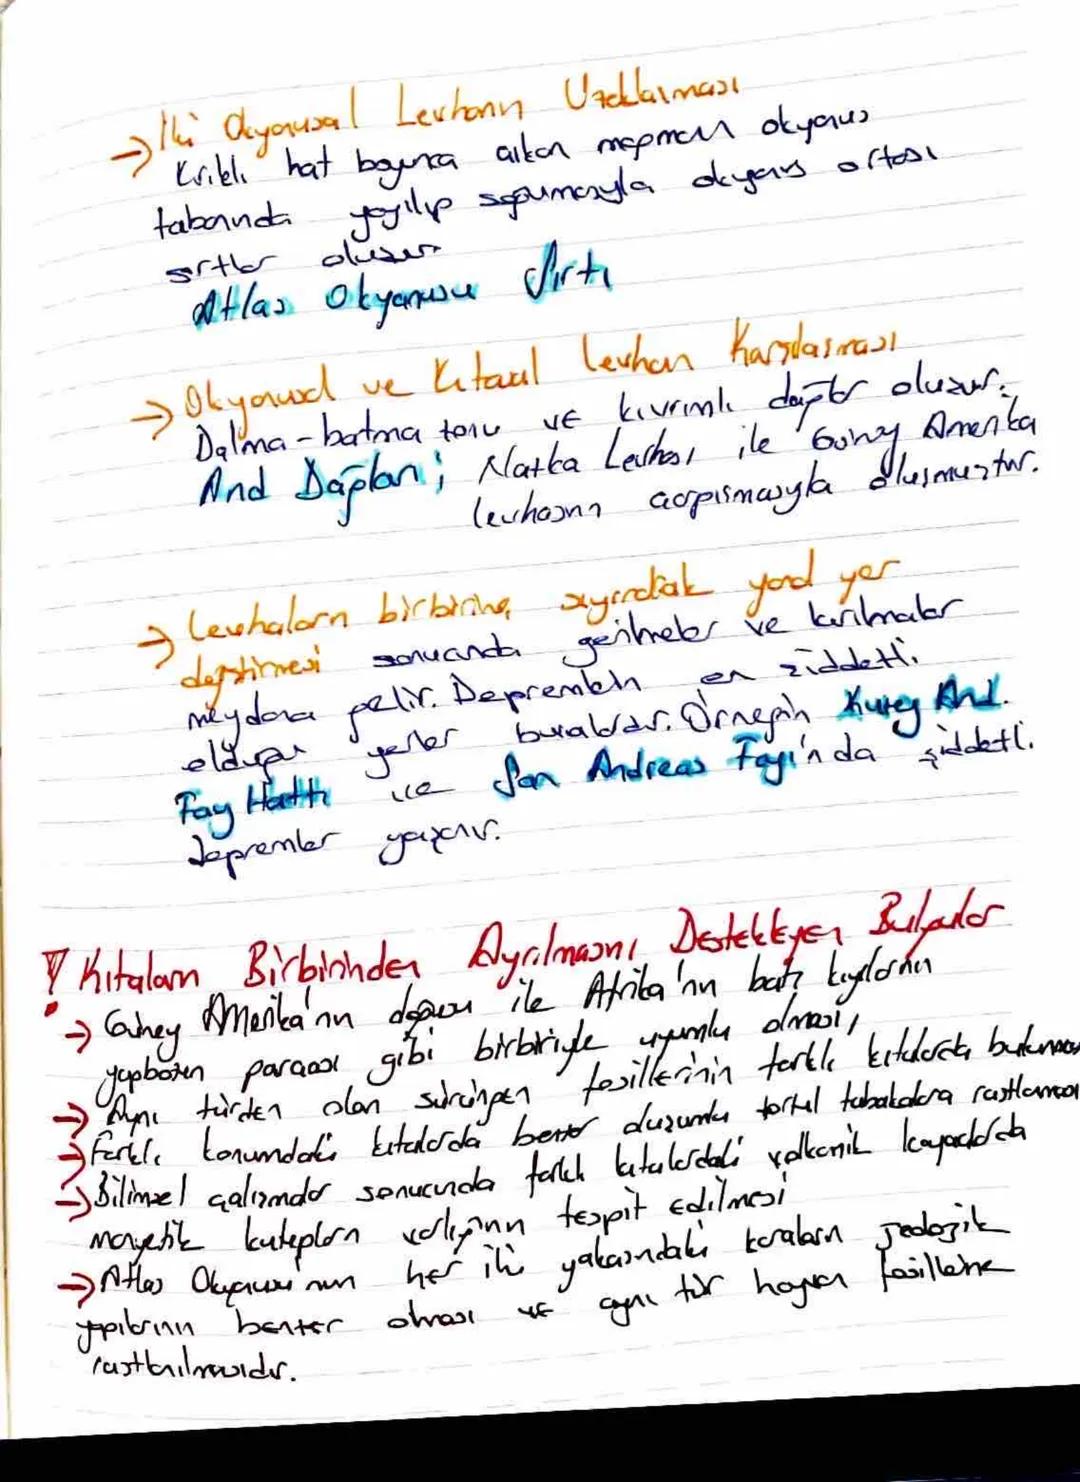 → İki Okyanusal Levhanın Uzaklaşması
Kırıklı hat boyunca çıkan magmanın okyanus
tabanında yayılıp soğumasıyla okyanus ortası
sırtlar oluşur
Atlas Okyanusu Sırtı
→ Okyanusal ve Kıtasal levhan Karşılaşması
Dalma-batma zonu ve kıvrımlı dağlar oluşur.
And Dağları; Nazka Levhası ile Güney Amerika
levhasının çarpışmasıyla oluşmuştur.
→ Levhaların birbirine sıyırarak yanal yer
değiştirmesi sonucunda gerilmeler ve kırılmalar
meydana gelir. Depremlerin en şiddetli
olduğu yerler buralardır. Örneğin Kuzey And.
Fay Hattı ve San Andreas Fayı'nda şiddetli
depremler yaşanır.
! Kıtaların Birbirinden Ayrılmasını Destekleyen Bulgular
→ Güney Amerika'nın doğusu ile Afrika'nın batı kıyılarının
yapbozun parçası gibi birbiriyle uyumlu olması,
→ Aynı türden olan sürüngen fosillerinin farklı kıtalarda bulunması
→ Farklı konumdaki kıtalarda benzer düzende tortul tabakalara rastlanması
→ Bilimsel çalışmalar sonucunda farklı kıtalardaki volkanik kayaçlarda
manyetik kutupların varlığının tespit edilmesi
→ Atlas Okyanusu'nun her iki yakasındaki karaların jeolojik
yapılarının benzer olması ve aynı tür hayvan fosillerine
rastlanılmasıdır.